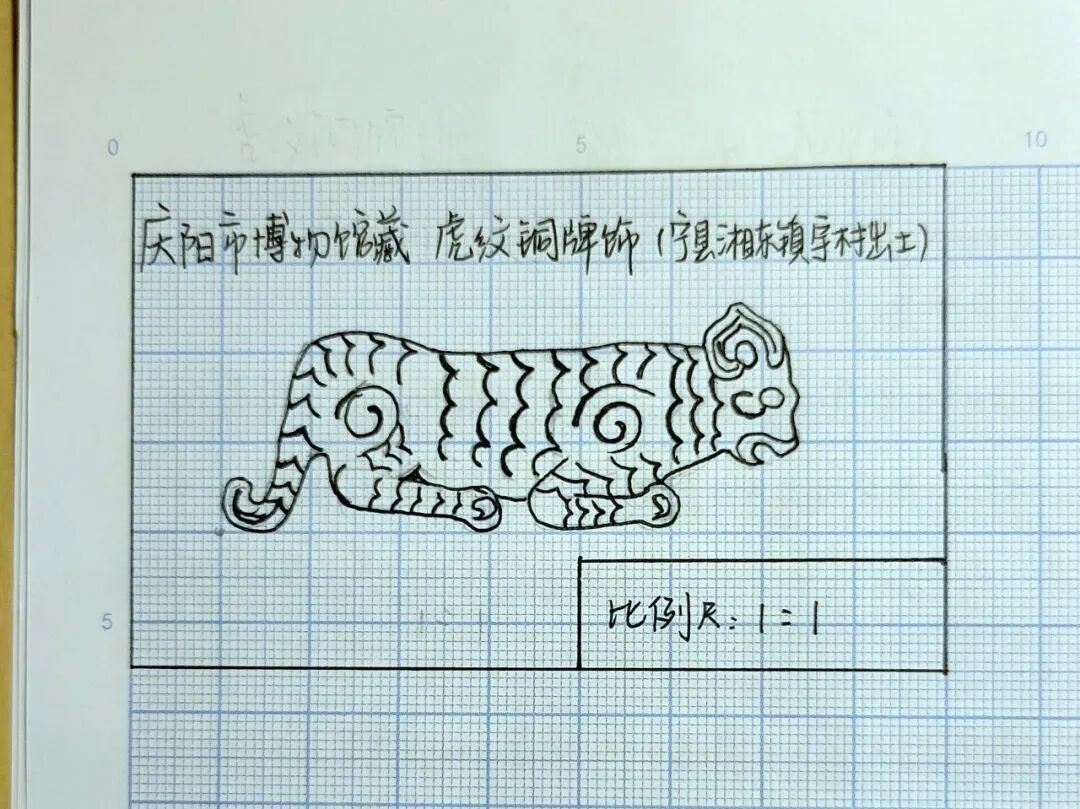 0 5 10
庆阳市博物馆藏 虎纹铜牌饰(宁县湘东镇宇村出土)
5
比例尺:1=1